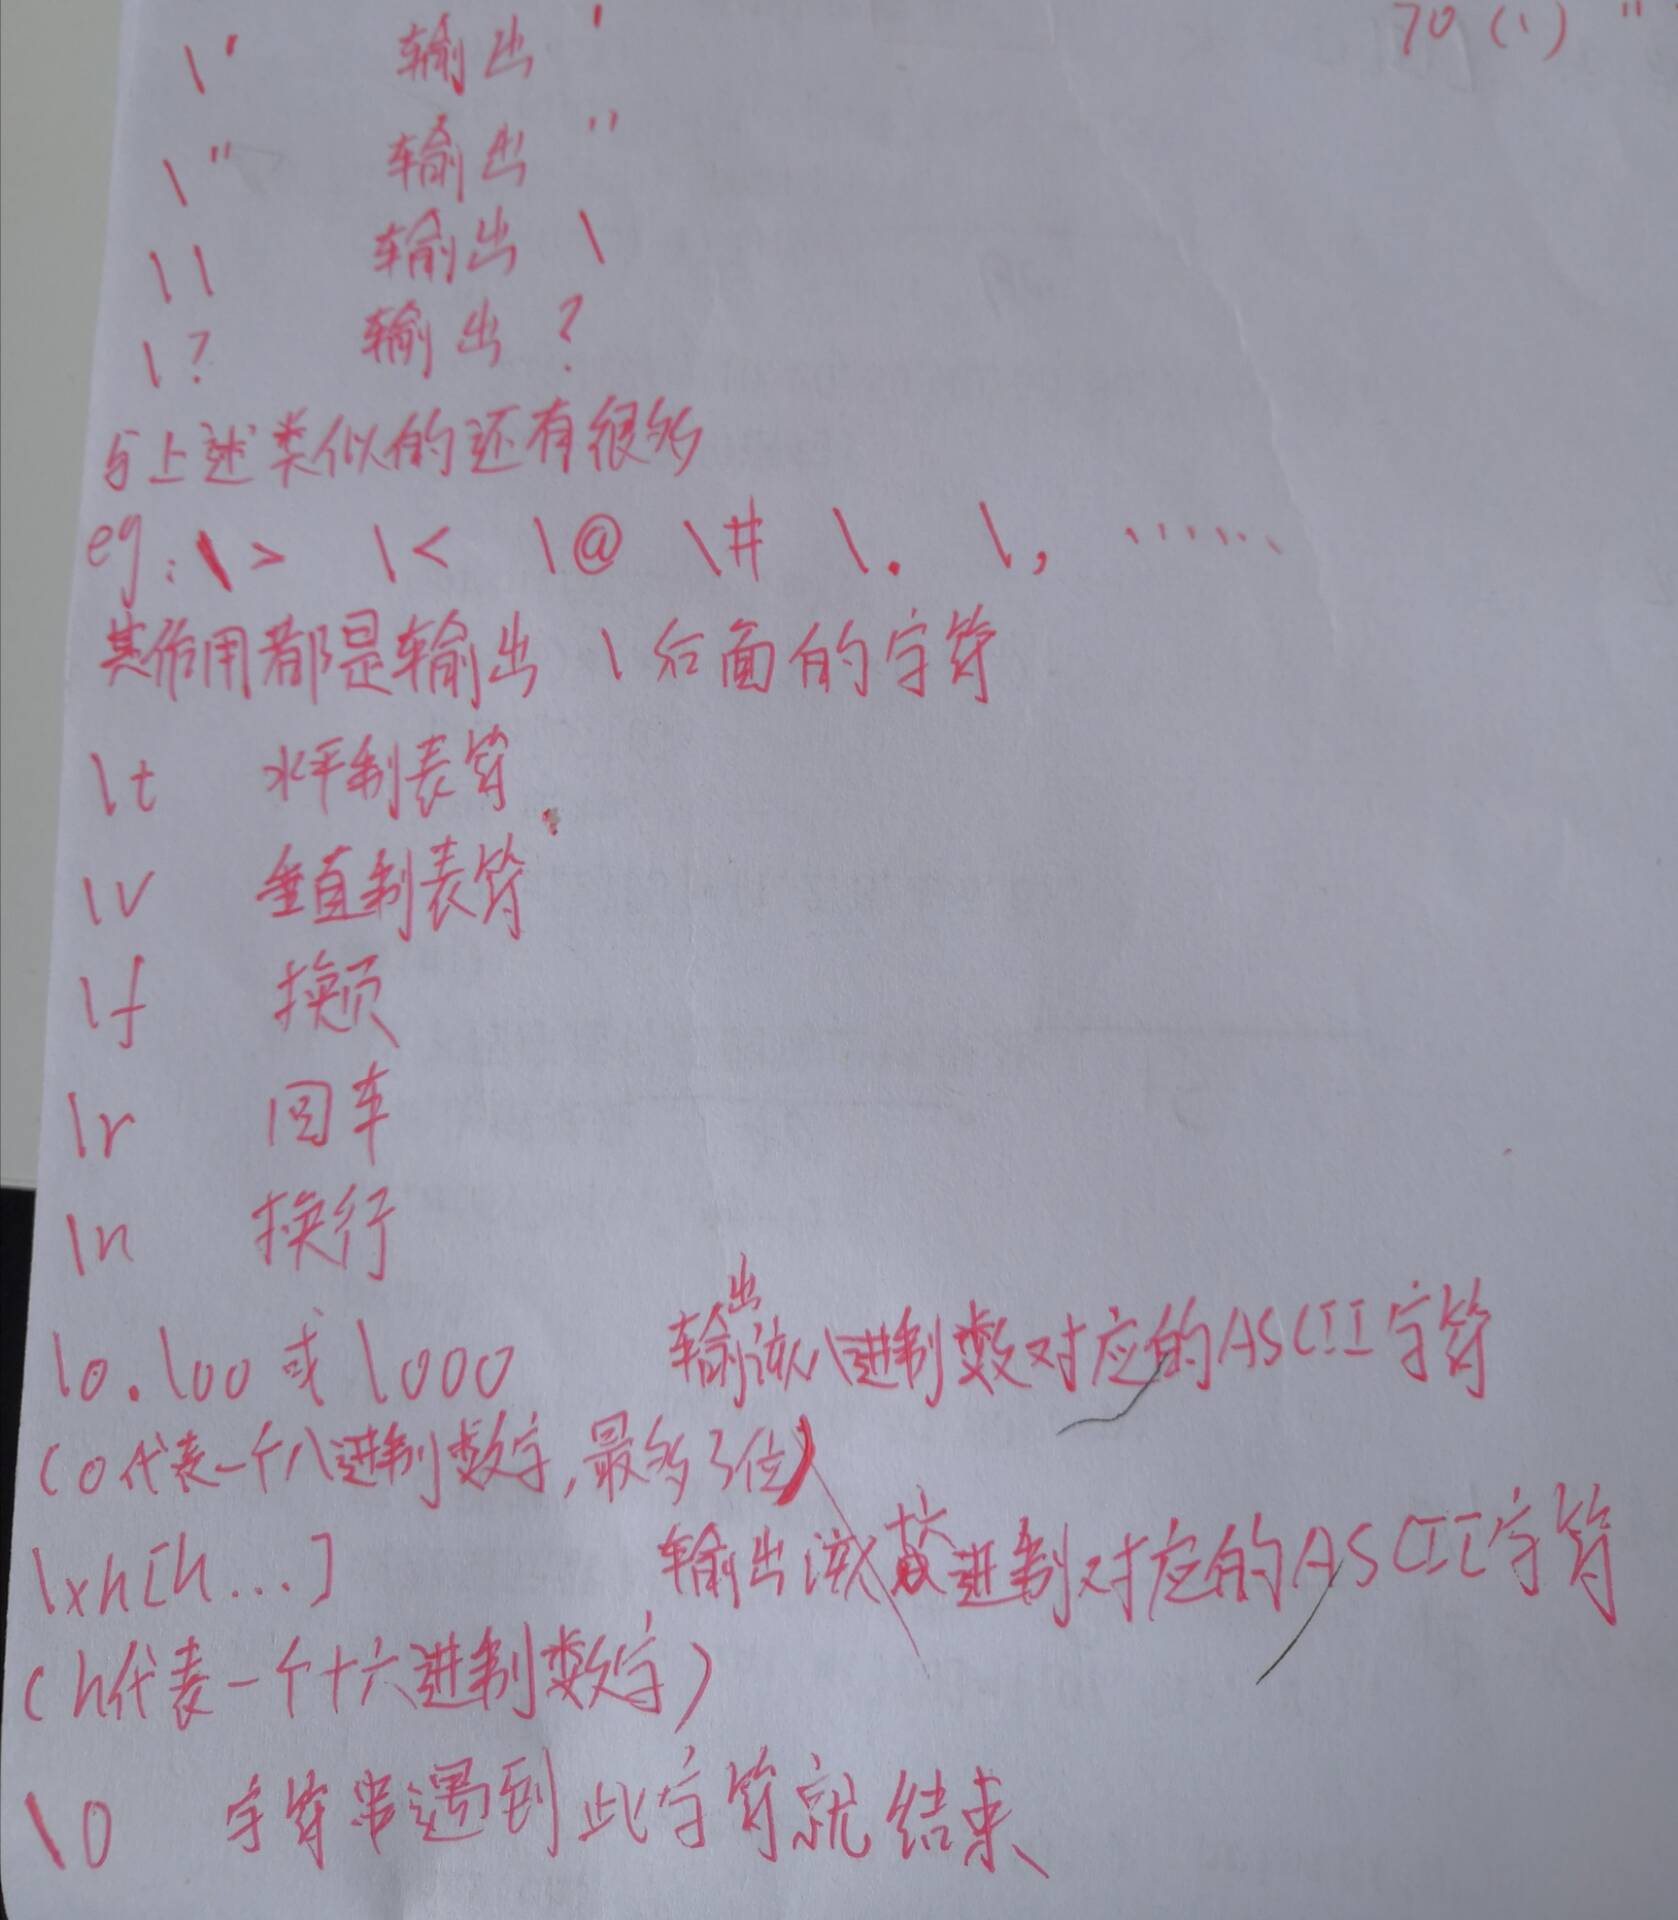 70（1）"
\' 输出 '
\" 输出 "
\\ 输出 \
\? 输出 ?
与上述类似的还有很多
eg: \> \< \@ \# \. \, ······
其作用都是输出 \后面的字符
\t 水平制表符
\v 垂直制表符
\f 换页
\r 回车
\n 换行
\o.\oo或\ooo 输出该八进制数对应的ASCII字符
(o代表一个八进制数字,最多3位)
\xh[h...] 输出该十六进制对应的ASCII字符
(h代表一个十六进制数字)
\0 字符串遇到此字符就结束